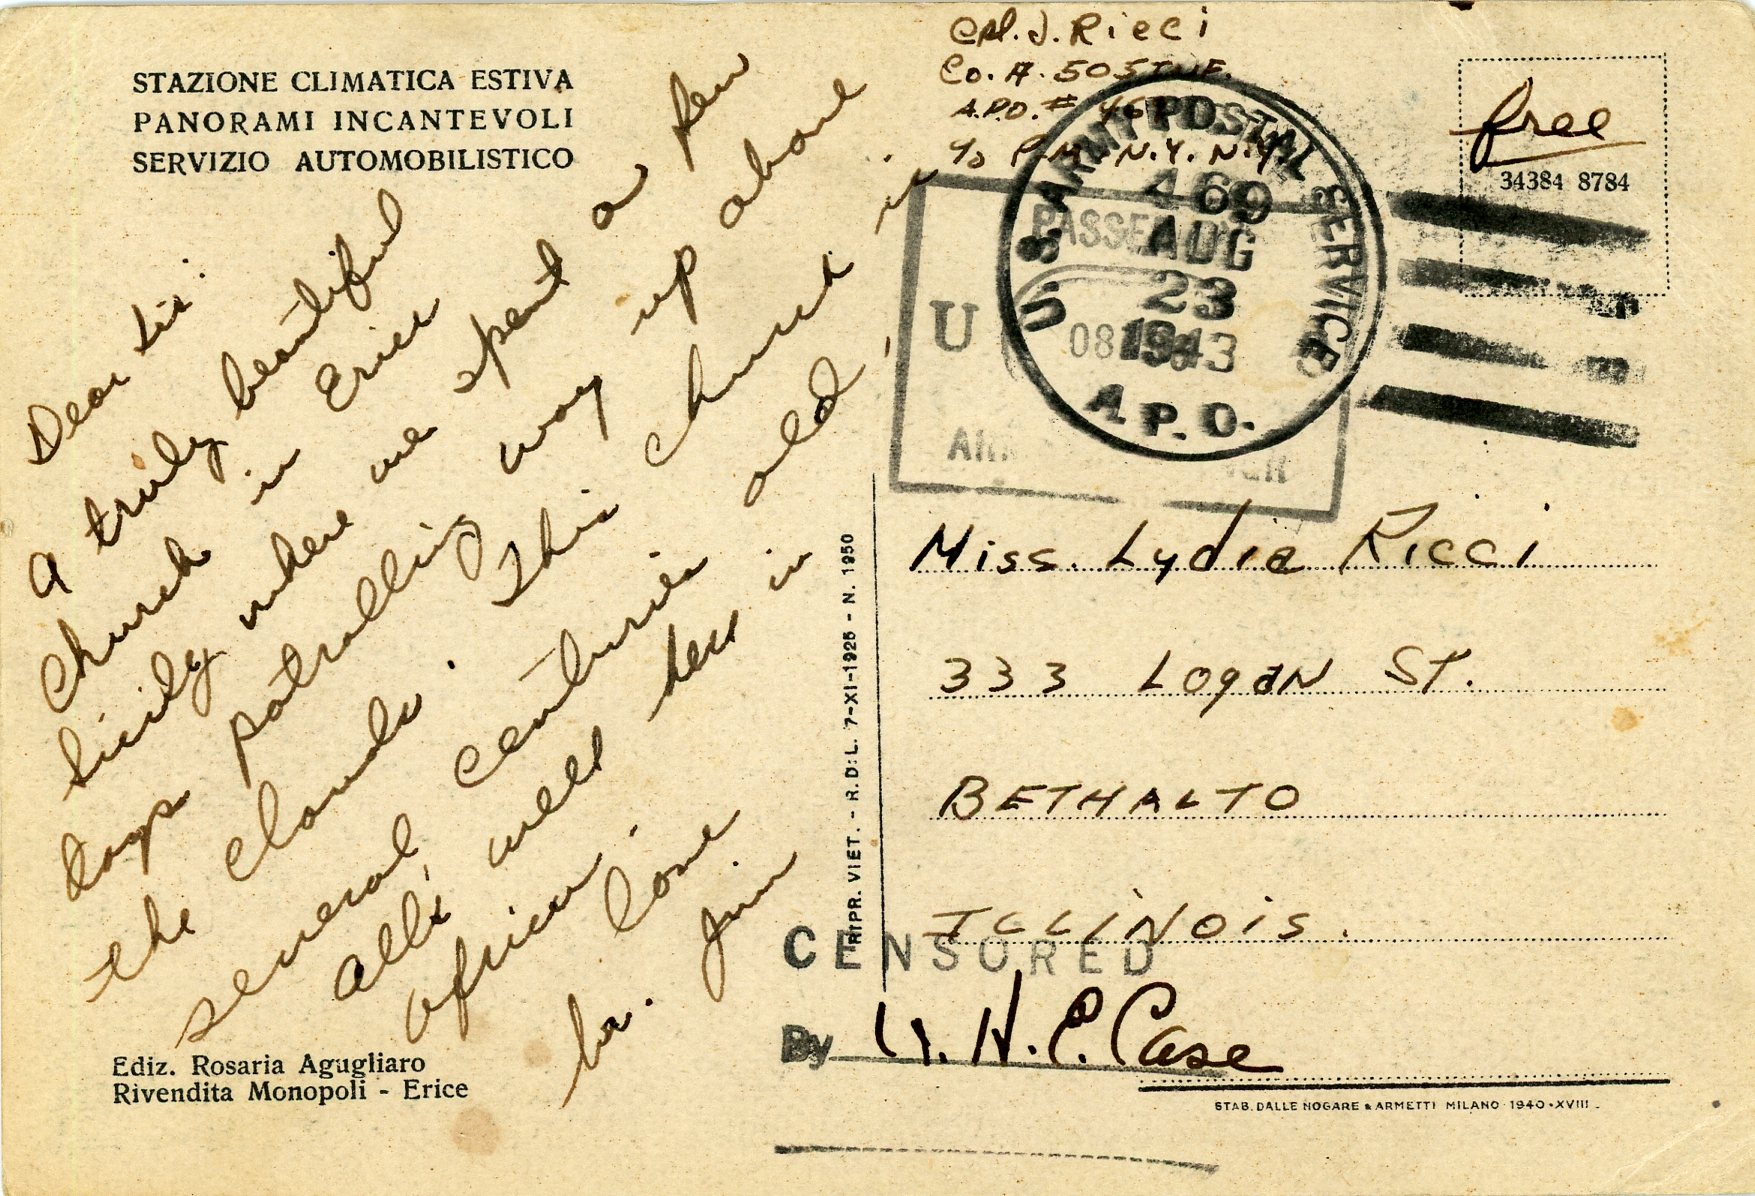 STAZIONE CLIMATICA ESTIVA
PANORAMI INCANTEVOLI
SERVIZIO AUTOMOBILISTICO
Dear Sis:
A truly beautiful
church in Erice
Sicily where we spent a few
days patrolling way up above
the clouds. This church is
several centuries old,
All's well here in
Africa.
Love
br. Jim
Ediz. Rosaria Agugliaro
Rivendita Monopoli - Erice
RIPR. VIET. - R. D: L. 7-XI-1925 - N. 1950
Cpl. J. Ricci
Co. A. 505
A.P.O. # 469
c/o P.M. N.Y. N.Y.
free
34384 8784
U. S. ARMY POSTAL SERVICE
469
AUG
23
1943
A.P.O.
PASSED
U
08
Miss. Lydia Ricci
333 Logan St.
BETHALTO
ILLINOIS.
CENSORED
By W. H. E. Case
STAB. DALLE NOGARE & ARMETTI MILANO 1940-XVIII